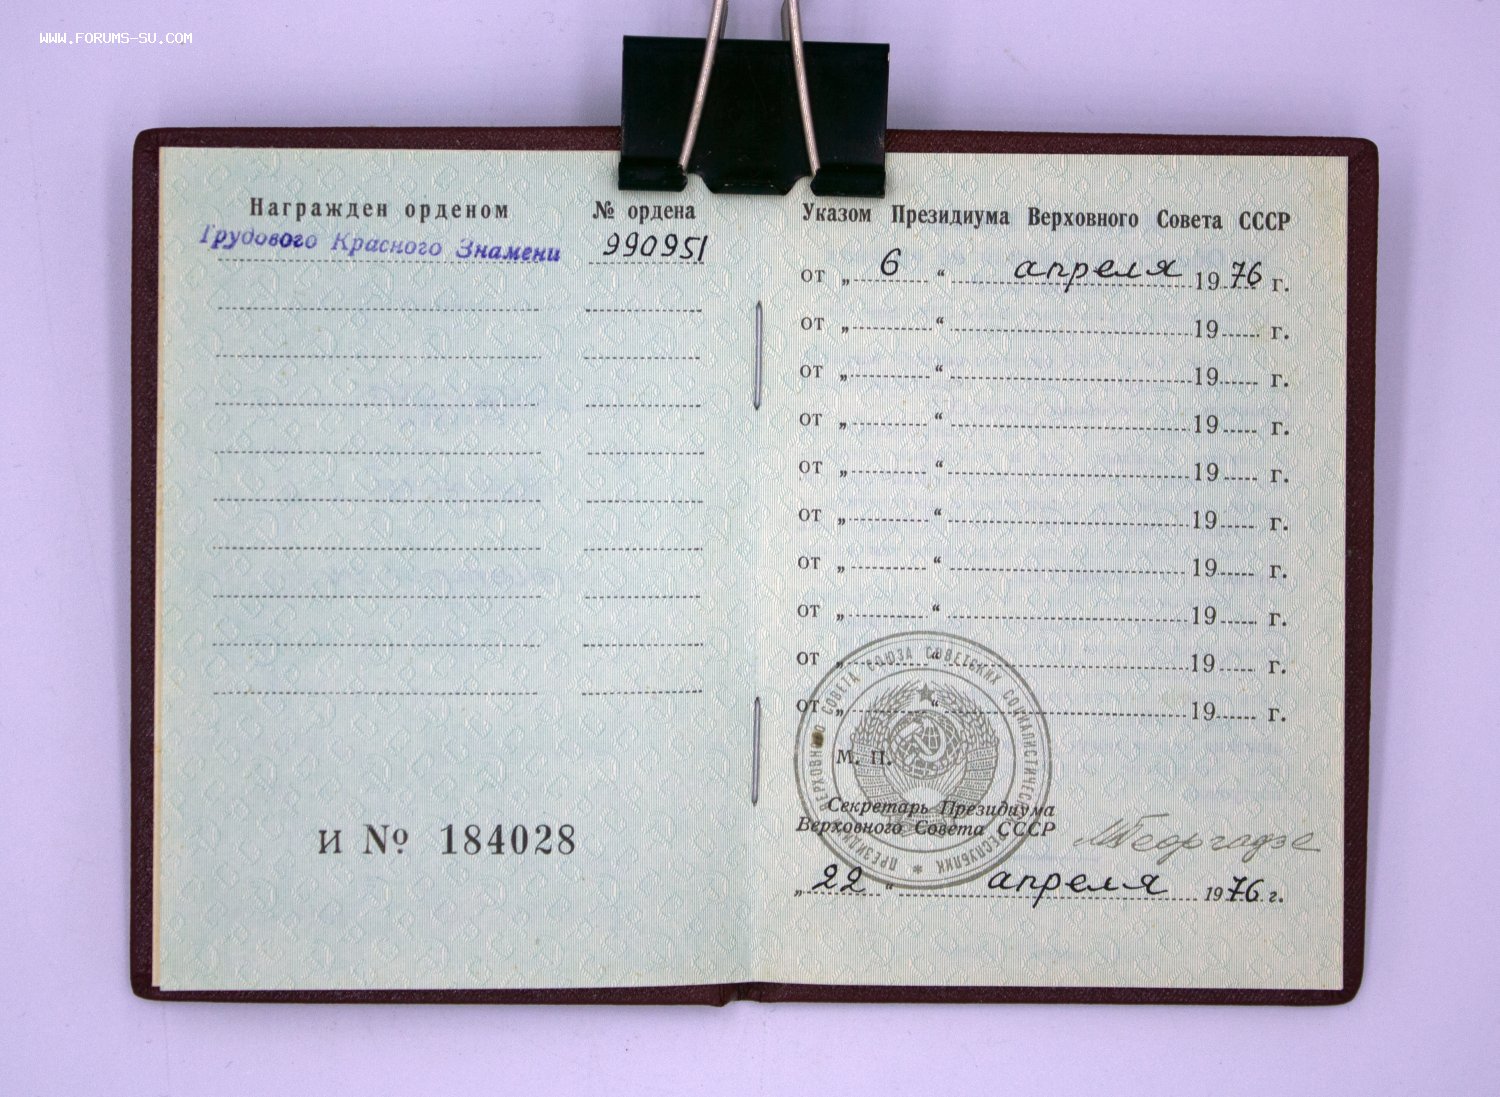 WWW.FORUMS-SU.COM
Награжден орденом № ордена
Трудового Красного Знамени 990951
И № 184028
Указом Президиума Верховного Совета СССР
от „ 6 “ апреля 1976 г.
от „ “ 19 г.
от „ “ 19 г.
от „ “ 19 г.
от „ “ 19 г.
от „ “ 19 г.
от „ “ 19 г.
от „ “ 19 г.
от „ “ 19 г.
от „ “ 19 г.
ПРЕЗИДИУМ ВЕРХОВНОГО СОВЕТА СОЮЗА СОВЕТСКИХ СОЦИАЛИСТИЧЕСКИХ РЕСПУБЛИК
М. П.
Секретарь Президиума
Верховного Совета СССР
МГеоргадзе
„ 22 “ апреля 1976 г.